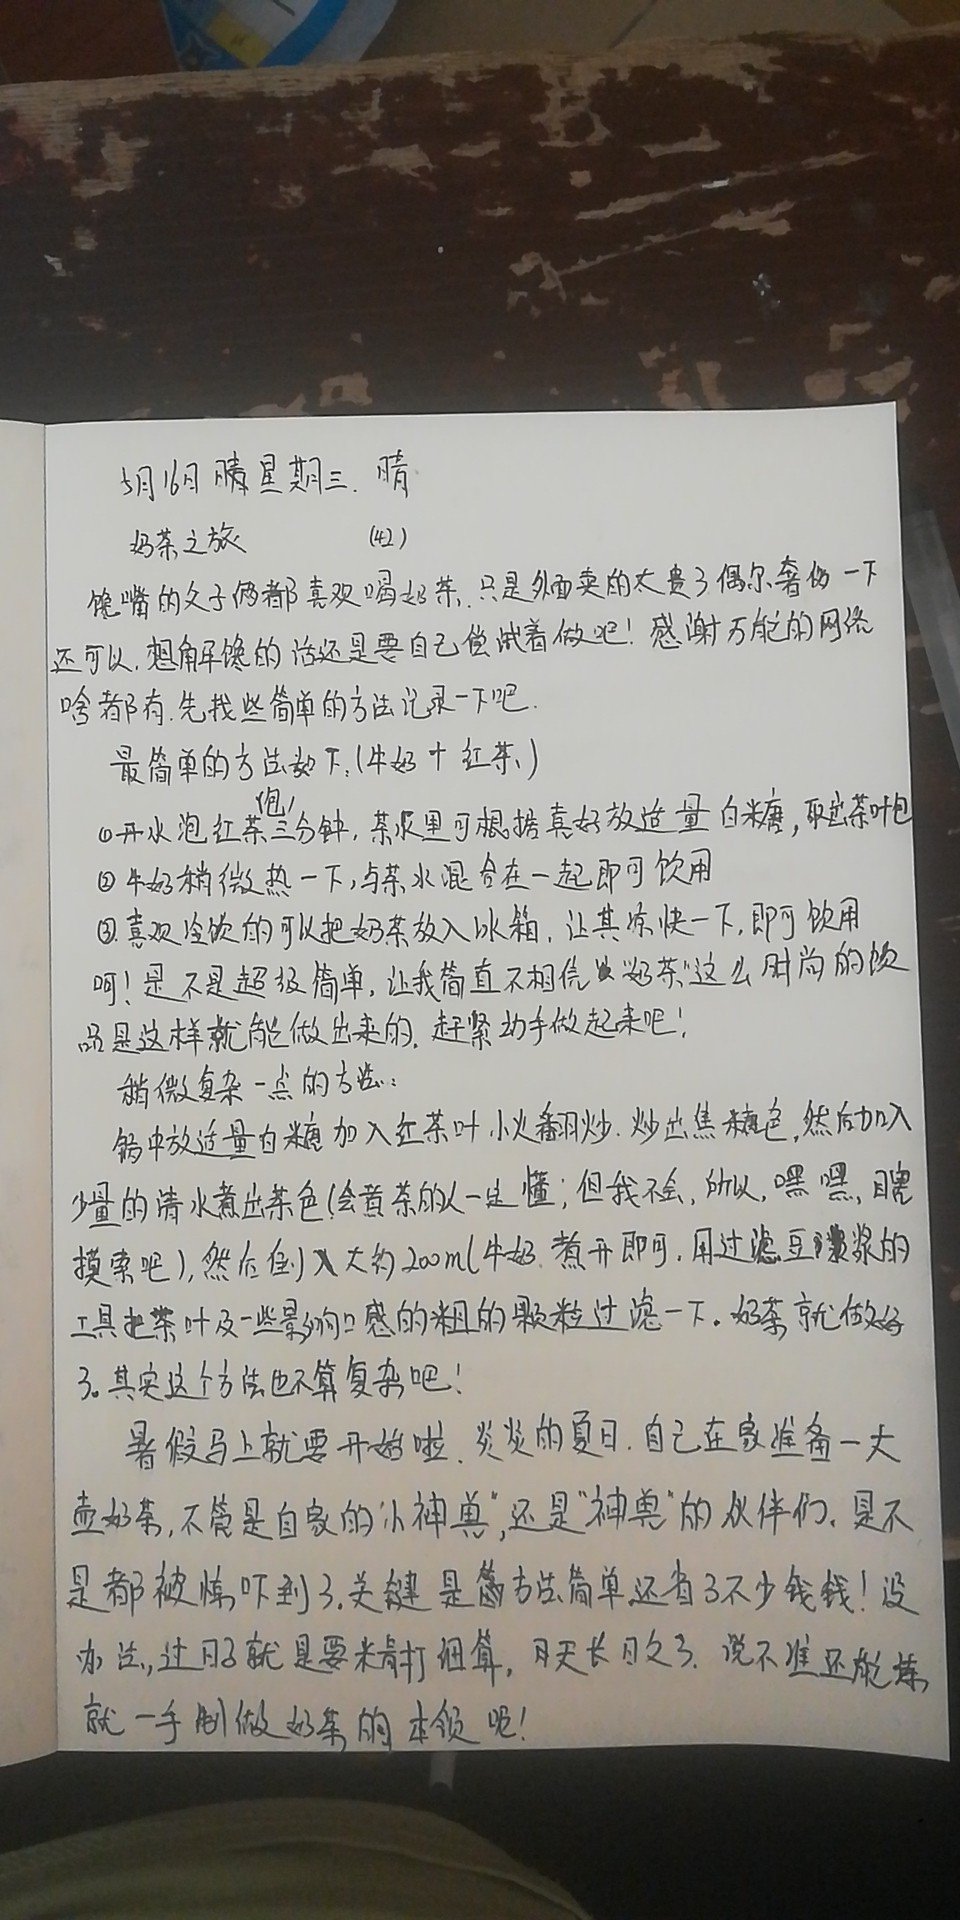 5月16日 晴 星期三. 晴
奶茶之旅 (42)
馋嘴的父子俩都喜欢喝奶茶.只是外面卖的太贵了偶尔奢侈一下
还可以.想解馋的话还是要自己尝试着做吧！感谢万能的网络
啥都有.先找些简单的方法记录一下吧.
最简单的方法如下:(牛奶+红茶、)
(包)
①开水泡红茶三分钟，茶水里可根据喜好放适量白糖，取出茶叶包
②牛奶稍微热一下,与茶水混合在一起即可饮用
③.喜欢冷饮的可以把奶茶放入冰箱.让其凉快一下.即可饮用
呵！是不是超级简单.让我简直不相信"奶茶"这么时尚的饮
品是这样就能做出来的.赶紧动手做起来吧！
稍微复杂一点的方法:
锅中放适量白糖加入红茶叶小火翻炒.炒出焦糖色,然后加入
少量的清水煮出茶色(会煮茶的人一定懂;但我不会,所以,嘿嘿,瞎
摸索吧),然后倒入大约200ml牛奶.煮开即可.用过滤豆浆的
工具把茶叶及一些影响口感的粗的颗粒过滤一下。奶茶就做好
了。其实这个方法也不算复杂吧！
暑假马上就要开始啦.炎炎的夏日.自己在家准备一大
壶奶茶,不管是自家的"小神兽",还是"神兽"的伙伴们.是不
是都被惊吓到了.关键是方法简单还省了不少钱钱！没
办法,过日子就是要精打细算.天长日久了.说不准还能炼
就一手制做奶茶的本领呢！